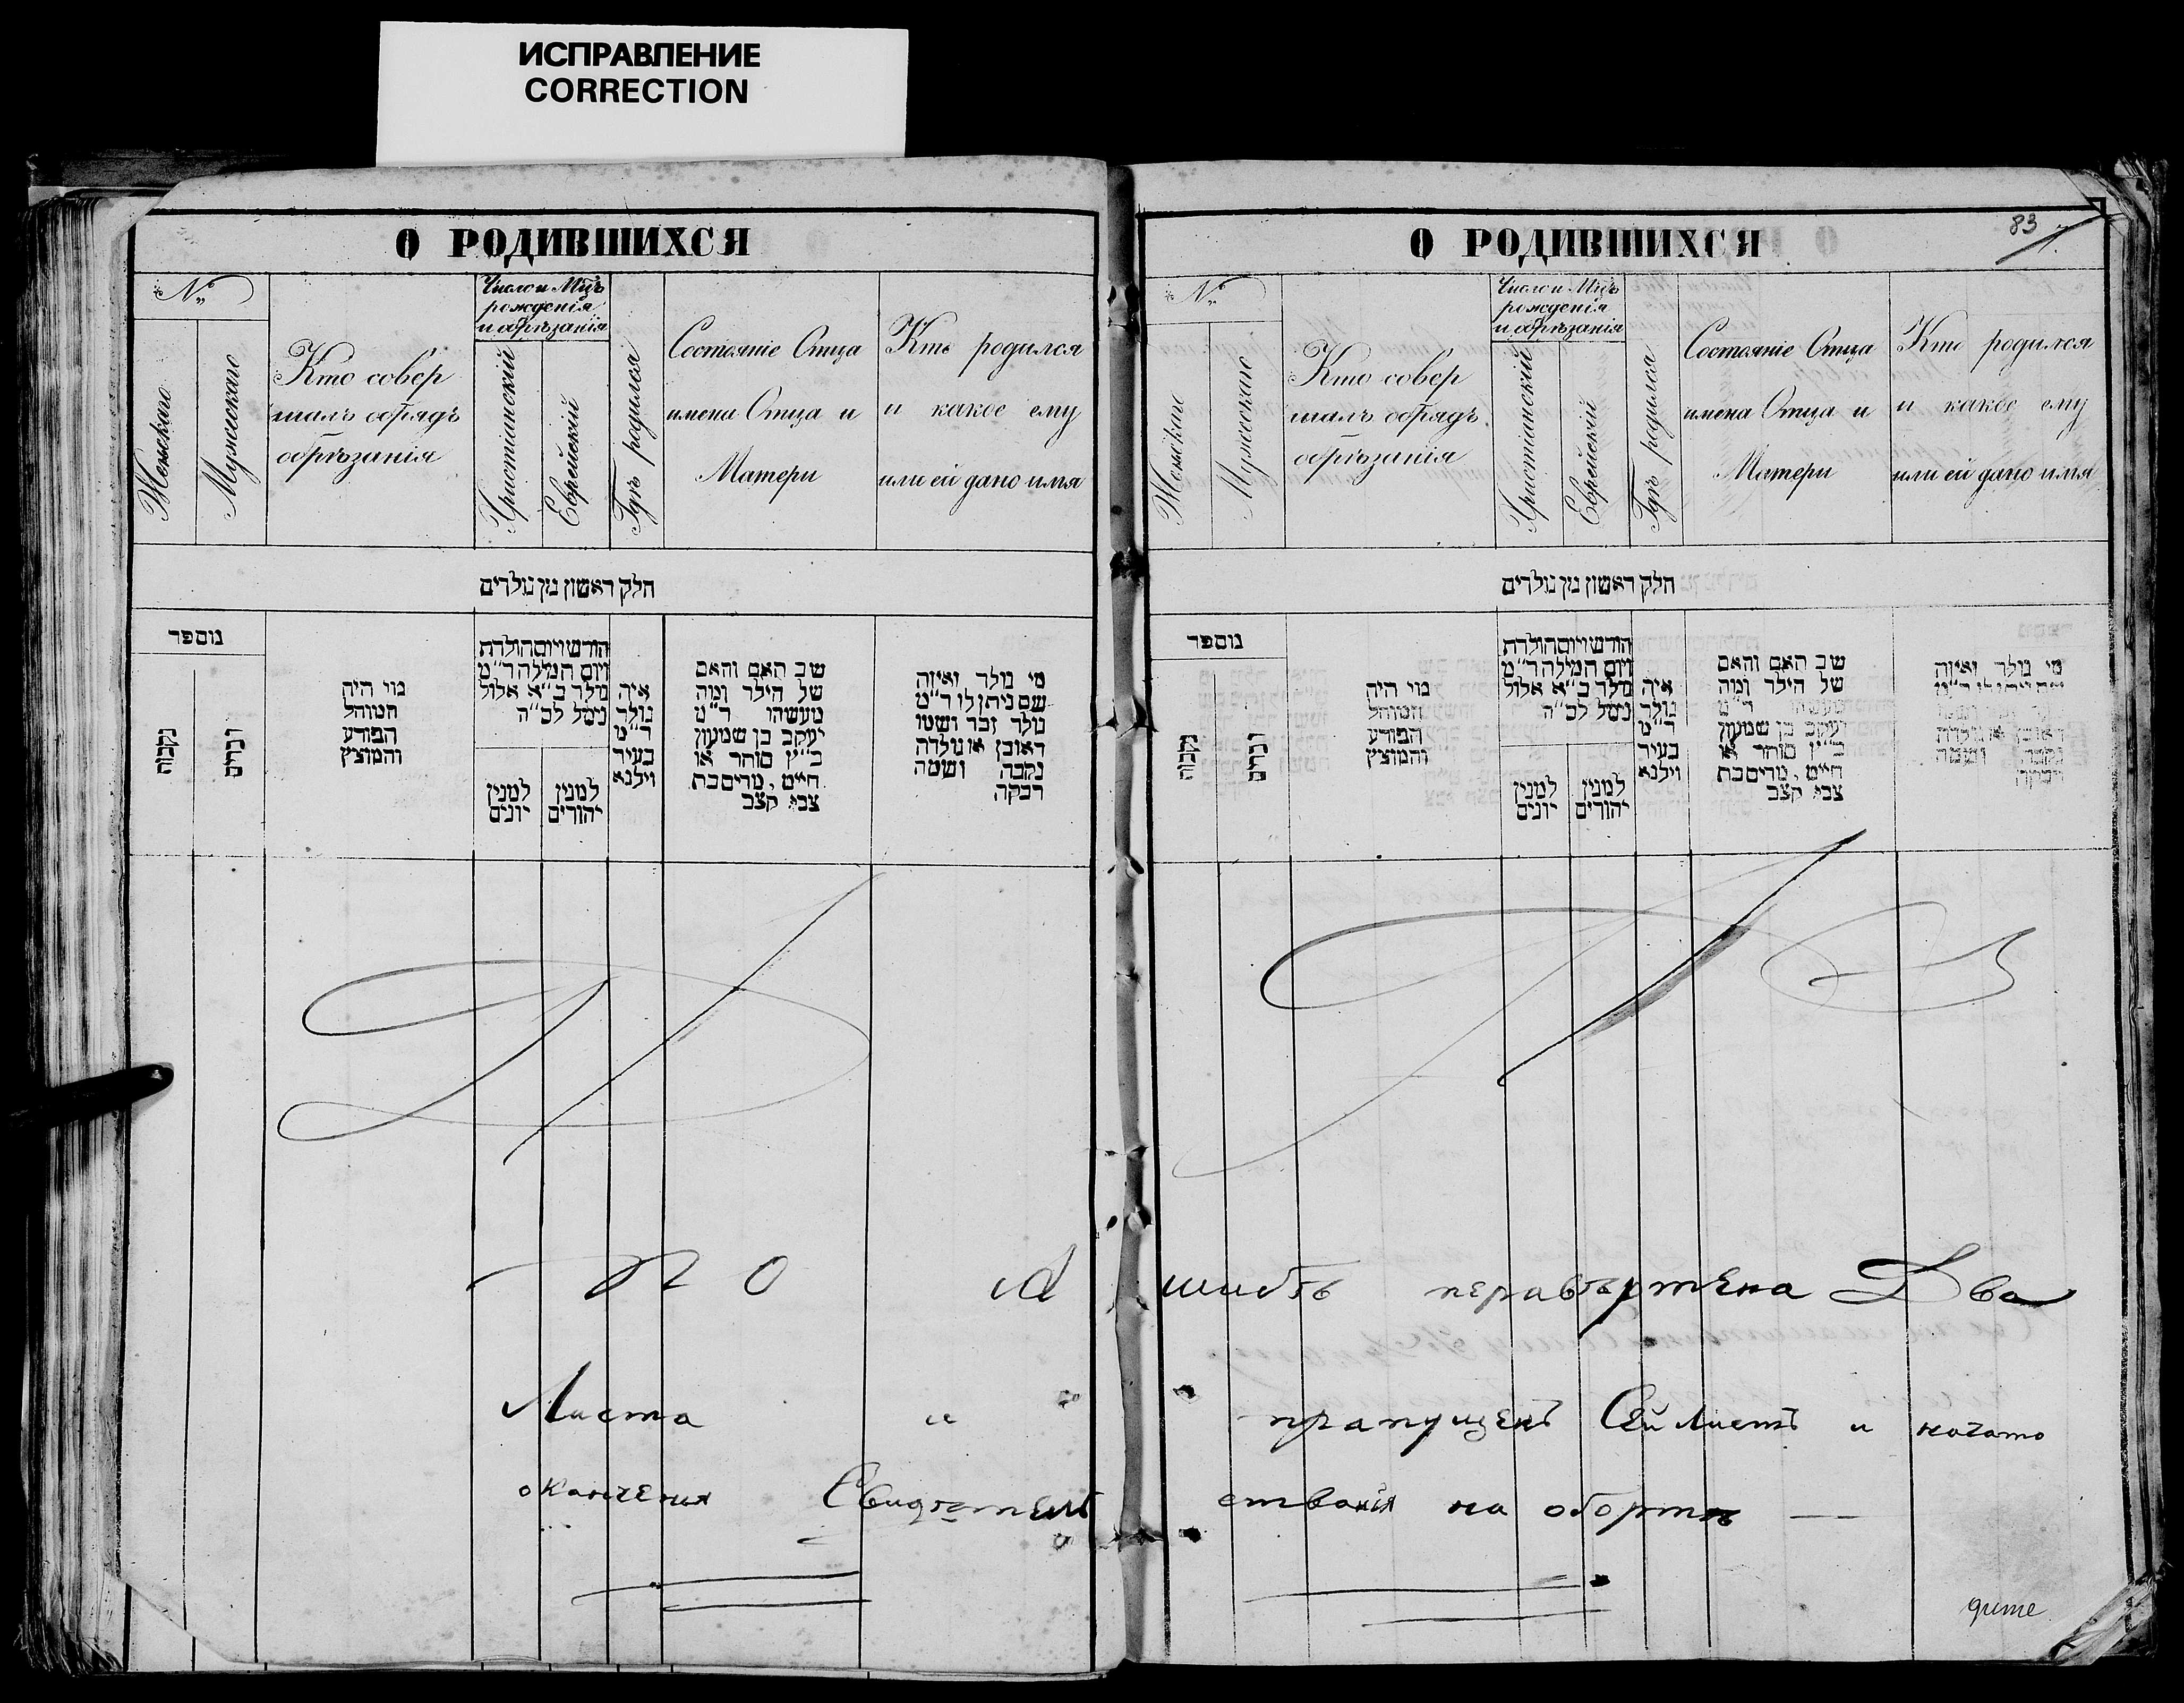 ИСПРАВЛЕНИЕ
CORRECTION
О РОДИВШИХСЯ
№
Женскаго
Мужескаго
Кто совер
шалъ обрядъ
обрѣзанія
Число и Мцъ
рожденія
и обрѣзанія
Христіанскій
Еврейскій
Гдѣ родился
Состояніе Отца
имена Отца и
Матери
Кто родился
и какое ему
или ей дано имя
חלק ראשון מן נולדים
מספר
נקבות
זכרים
מי היה
המוהל
הפורע
והמוצץ
חודש ויום הולדת
ויום המילה ד״מ
נולד ב״א אלול
נימל לכ״ה
למנין
יונים
למנין
יהודים
איה
נולד
ד״מ
בעיר
ווילנא
שב האם והאם
של הילד ומה
מעשהו ד״מ
יעקב בן שמעון
כ״ץ סוחר או
חייט, מרים בת
צבי קצב
מי נולד ואיזה
שם ניתן לו ד״מ
נולד זכר ושמו
ראובן או נולדה
נקבה ושמה
רבקה
О РОДИВШИХСЯ
83
№
Женскаго
Мужескаго
Кто совер
шалъ обрядъ
обрѣзанія
Число и Мцъ
рожденія
и обрѣзанія
Христіанскій
Еврейскій
Гдѣ родился
Состояніе Отца
имена Отца и
Матери
Кто родился
и какое ему
или ей дано имя
חלק ראשון מן נולדים
מספר
נקבות
זכרים
מי היה
המוהל
הפורע
והמוצץ
חודש ויום הולדת
ויום המילה ד״מ
נולד ב״א אלול
נימל לכ״ה
למנין
יונים
למנין
יהודים
איה
נולד
ד״מ
בעיר
ווילנא
שב האם והאם
של הילד ומה
מעשהו ד״מ
יעקב בן שמעון
כ״ץ סוחר או
חייט, מרים בת
צבי קצב
מי נולד ואיזה
שם ניתן לו ד״מ
ראובן או נולדה
נקבה ושמה
רבקה
по
шибкѣ перавѣртена Два
Листа и прапущенъ Сей Листъ и начато
оканченія Свидѣтель ствванія на обортѣ